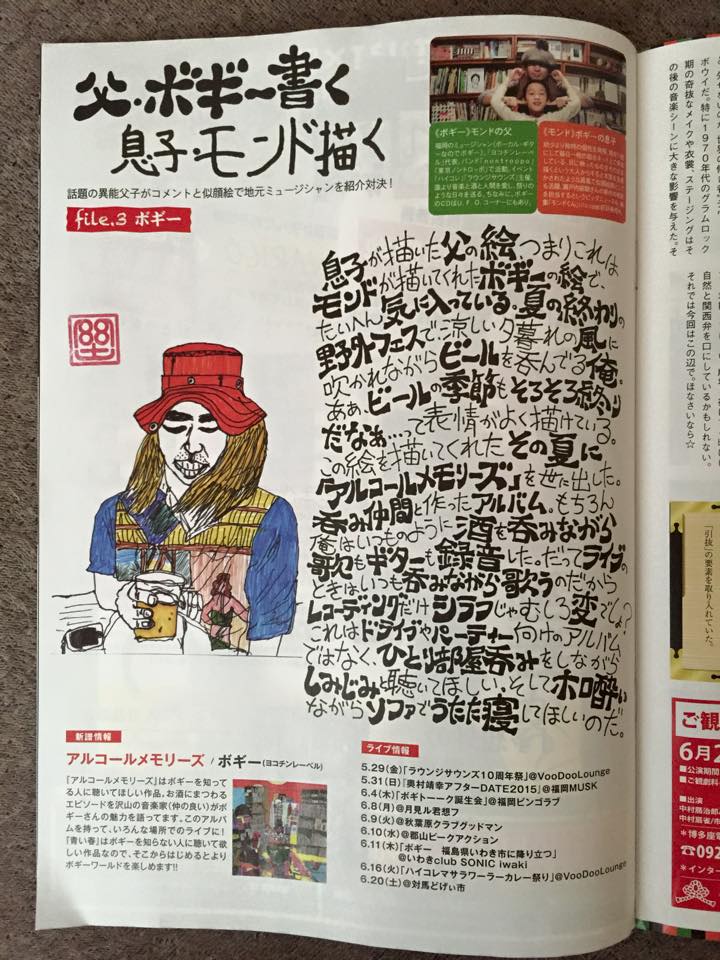 父・ボギー書く
息子・モンド描く
話題の異能父子がコメントと似顔絵で地元ミュージシャンを紹介対決！
file.3 ボギー
《ボギー》モンドの父
《モンド》ボギーの息子
息子が描いた父の絵つまりこれは
モンドが描いてくれたボギーの絵で、
たいへん気に入っている。夏の終わりの
野外フェスで、涼しい夕暮れの風に
吹かれながらビールを呑んでる俺。
ああ、ビールの季節もそろそろ終り
だなぁ…って表情がよく描けている。
この絵を描いてくれたその夏に
「アルコールメモリーズ」を世に出した。
呑み仲間と作ったアルバム。もちろん
俺はいつものように酒を呑みながら
歌もギターも録音した。だってライブの
ときはいつも呑みながら歌うのだから
レコーディングだけシラフじゃむしろ変でしょ？
これはドライブやパーティー向けのアルバム
ではなく、ひとり部屋呑みをしながら
しみじみと聴いてほしい、そしてホロ酔い
ながらソファでうたた寝してほしいのだ。
新譜情報
アルコールメモリーズ / ボギー(ヨコチンレーベル)
『アルコールメモリーズ』はボギーを知って
る人に聴いてほしい作品。お酒にまつわる
エピソードを沢山の音楽家(仲の良い)がボ
ギーさんの魅力を語ってます。このアル
バムを持って、いろんな場所でのライブに！
『青い春』はボギーを知らない人に聴いて欲
しい作品なので、そこからはじめるとより
ボギーワールドを楽しめます!!
ライブ情報
5.29(金)「ラウンジサウンズ10周年祭」@VooDooLounge
5.31(日)「奥村靖幸アフターDATE2015」@福岡MUSK
6.4(木)「ボギトーーク誕生会」@福岡ビンゴラブ
6.8(月)@月見ル君想フ
6.9(火)@秋葉原クラブグッドマン
6.10(水)@郡山ピークアクション
6.11(木)「ボギー 福島県いわき市に降り立つ」
@いわきclub SONIC iwaki
6.16(火)「ハイコレマサラワーラーカレー祭り」@VooDooLounge
6.20(土)@対馬どげぃ市
ボウイだ。特に1970年代のグラムロック
期の奇抜なメイクや衣裳、ステージングはそ
の後の音楽シーンに大きな影響を与えた。そ
自然と関西弁を口にしているかもしれない。
それでは今回はこの辺で。ほなさいなら☆
「引抜」の要素を取り入れていた。
ご観
6月2
■公演期間
■ご観劇料
■出演
＊博多座電
☎092
＊インター